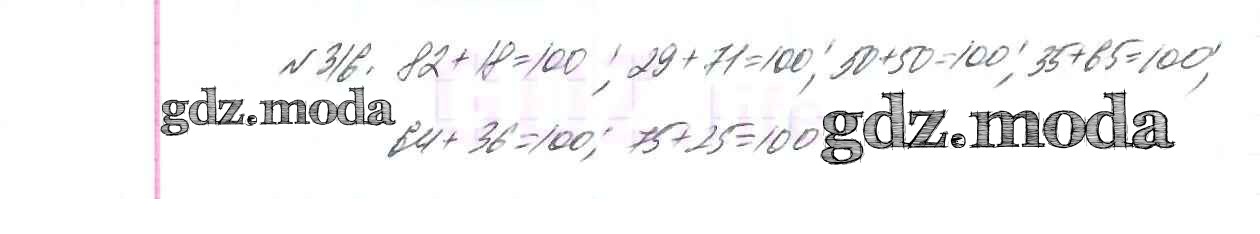 № 316. 82+18=100; 29+71=100; 50+50=100; 35+65=100;
gdz.moda
64+36=100; 75+25=100 gdz.moda